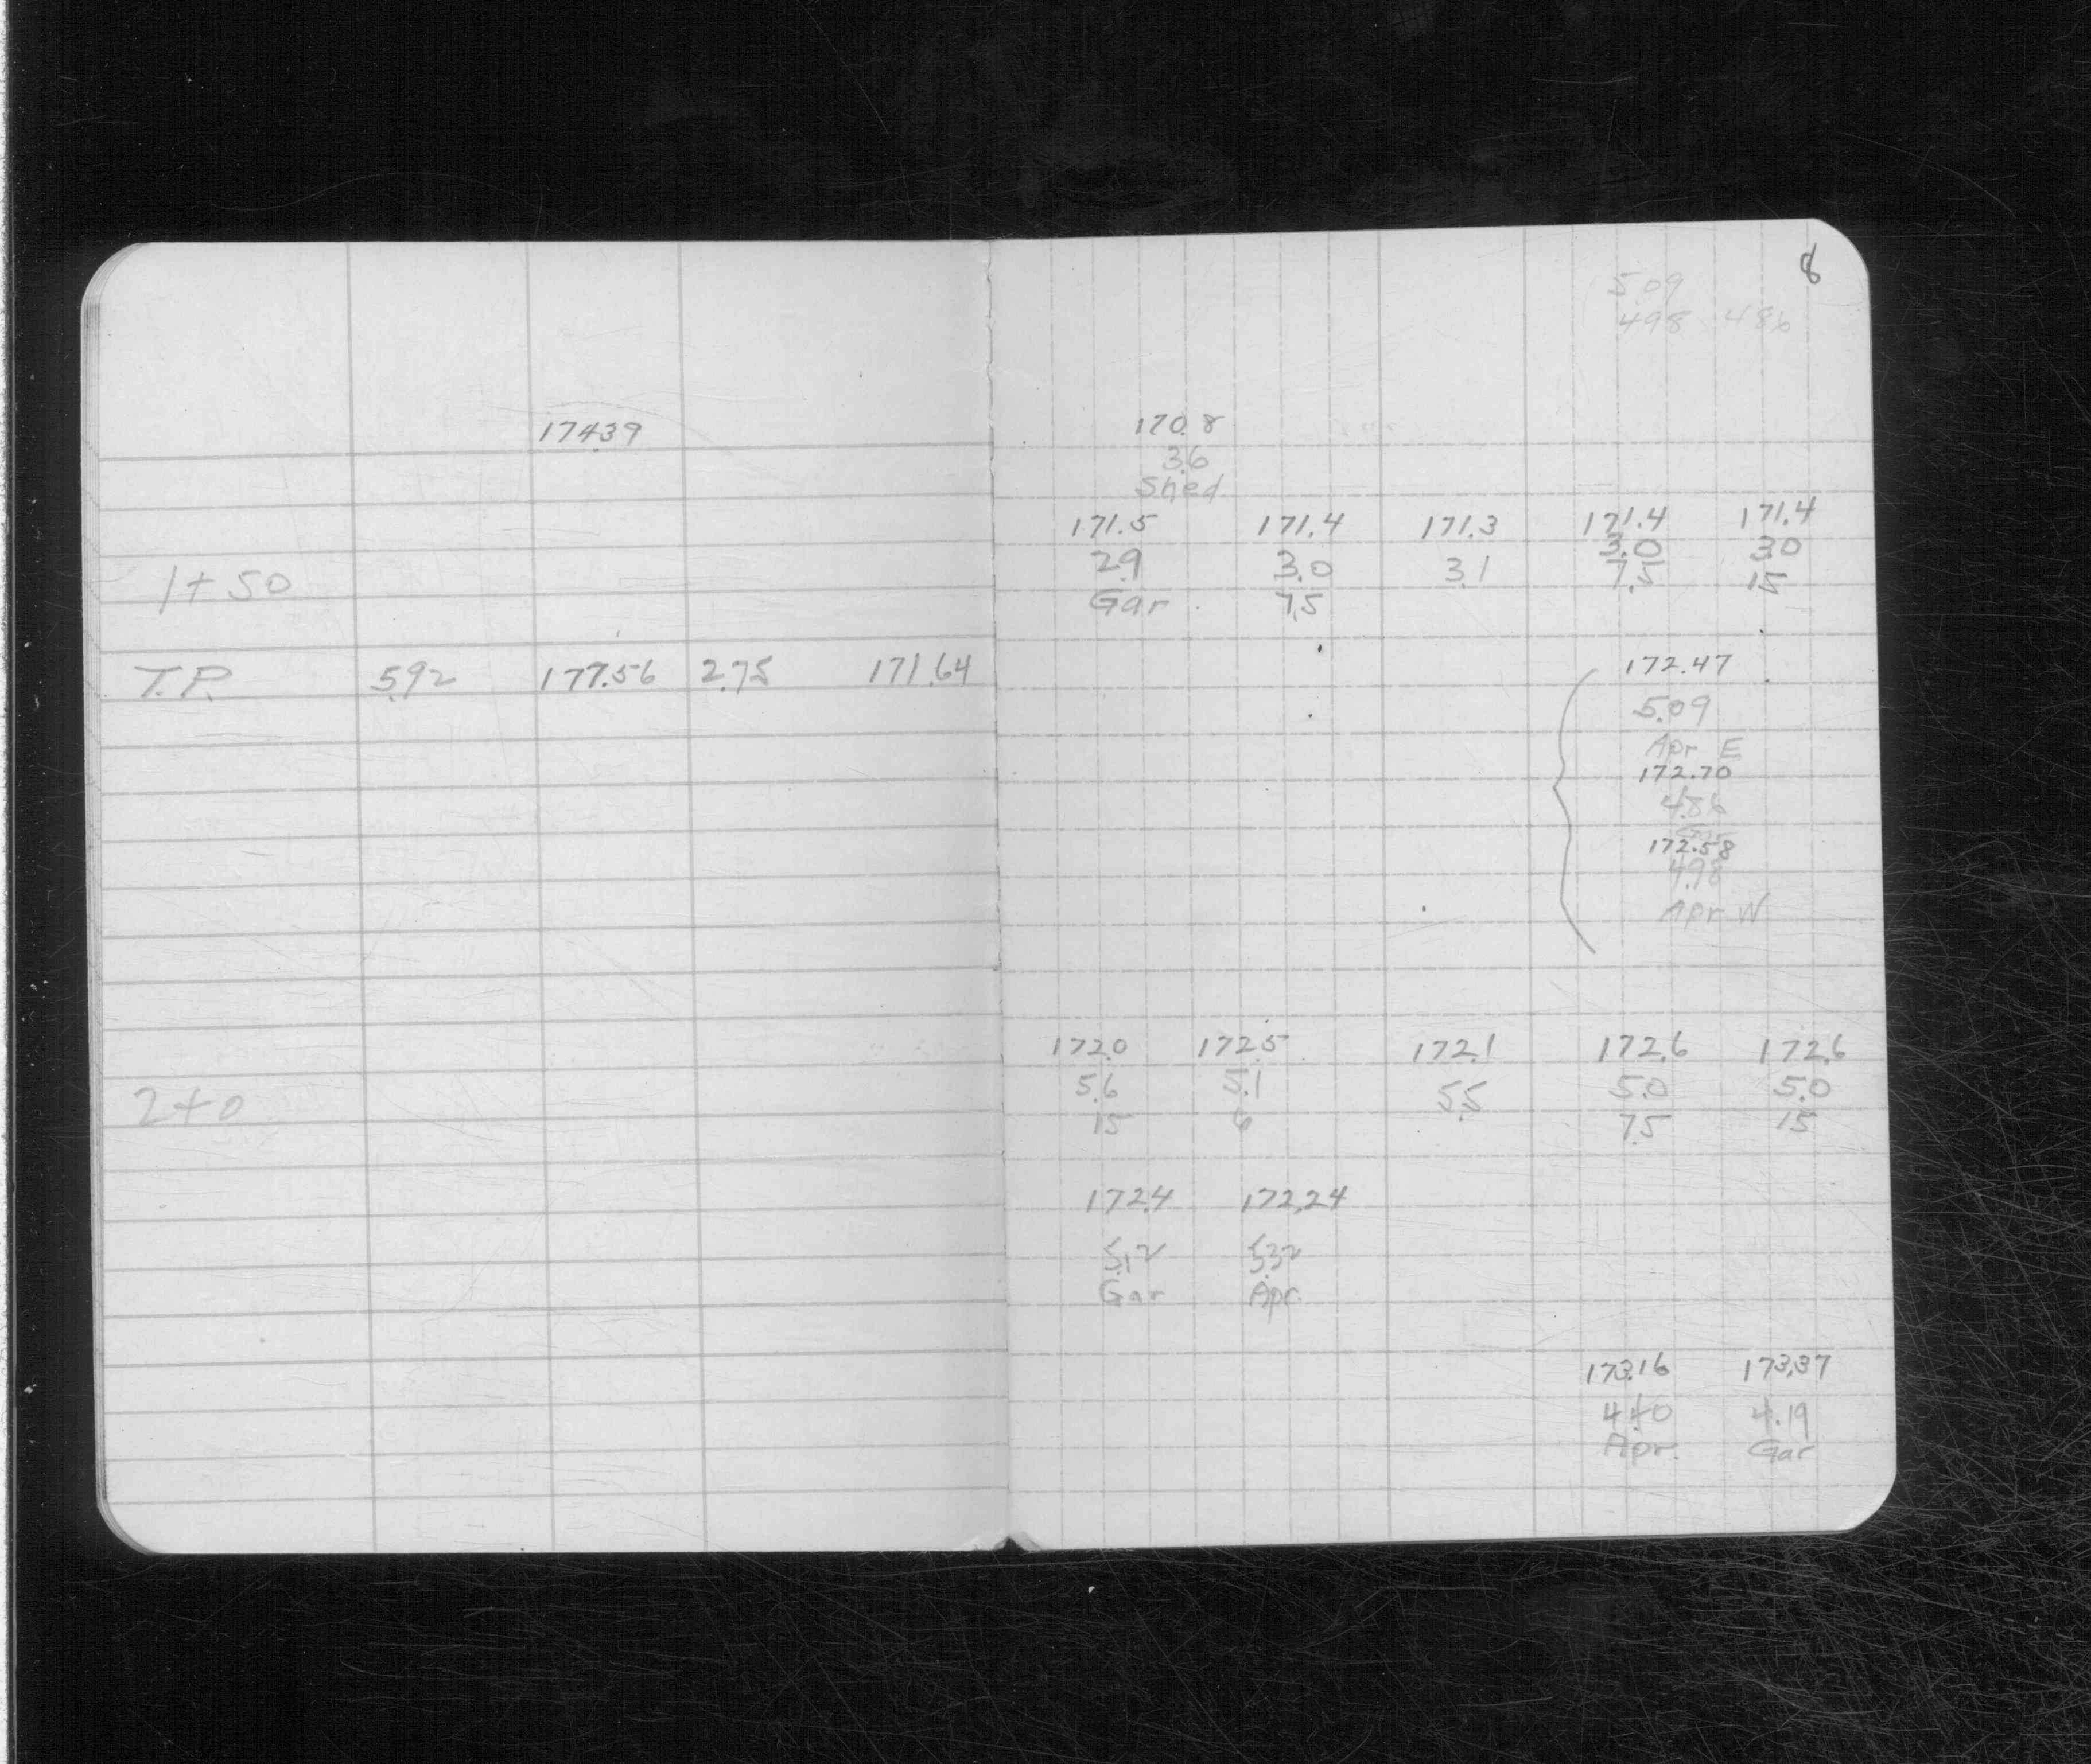 8
5.09
4.98 4.86
174.39 170.8
3.6
Shed
171.5 171.4 171.3 171.4 171.4
2.9 3.0 3.1 3.0 3.0
1+50 Gar 7.5 7.5 15
T.P. 5.92 177.56 2.75 171.64 172.47
5.09
Apr E
172.70
4.86
172.58
4.98
Apr W
172.0 172.5 172.1 172.6 172.6
2+0 5.6 5.1 5.5 5.0 5.0
15 6 7.5 15
172.4 172.24
5.12 5.32
Gar Apr.
173.16 173.37
4.40 4.19
Apr. Gar